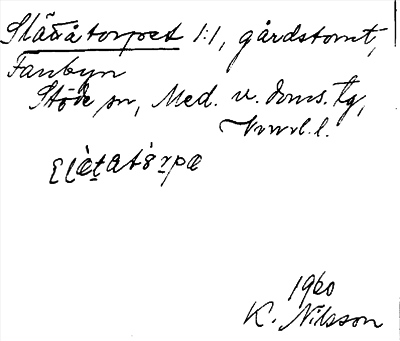 Slättåtorpet 1:1, gårdstomt,
Fanbyn
Stöde sn, Med. v. doms. tg,
Vnrl. l.
1960
K. Nilsson